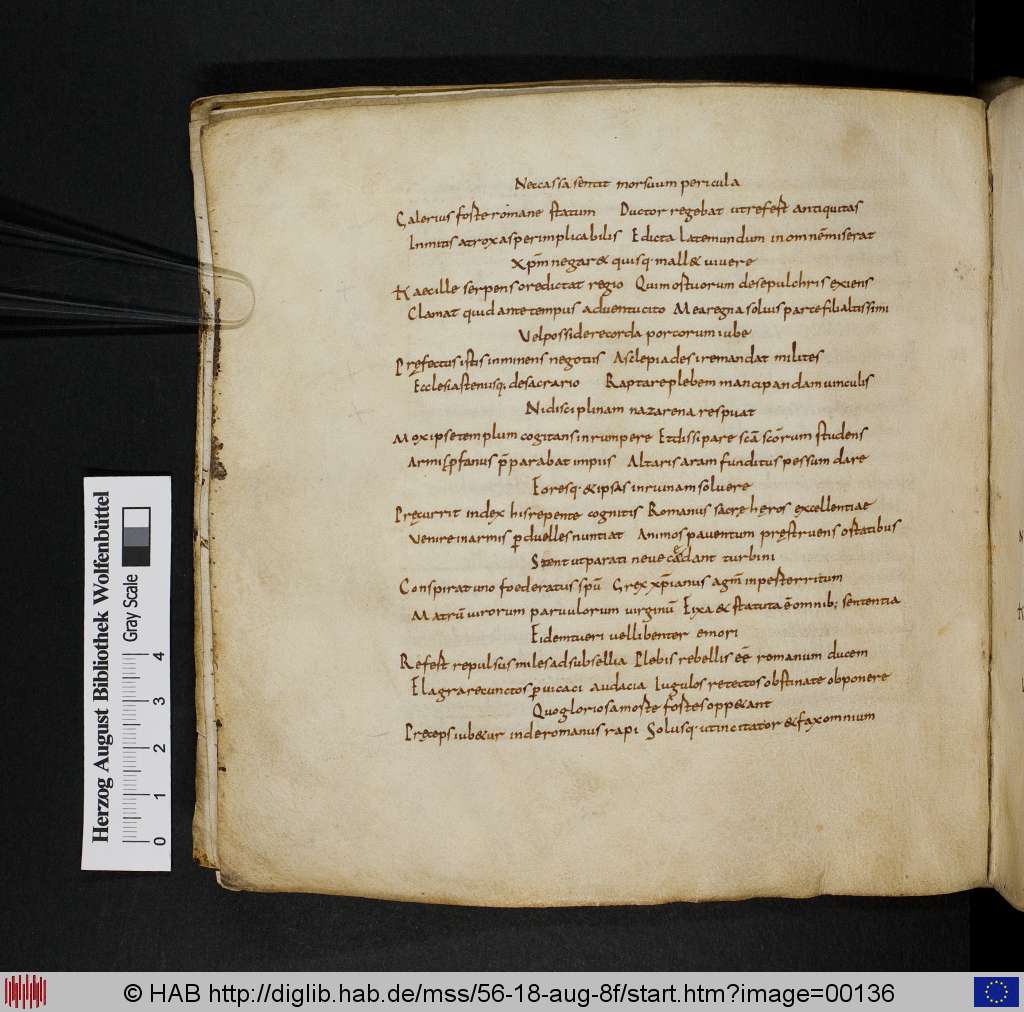 Neccassa sentit morsuum pericula
Galerius forte romane statum Ductor regebat utrefert antiquitas
Inmitis atrox asper implicabilis Edicta latemundum inomnē miserat
Xp̄m negar& quisq· mall& vivere
Haecille serpens oredictat regio Quimortuorum desepulchris exiens
Clamat quid ante tempus adventucito Mearegna soluis parce filialtissimi
Velpossidere corda porcorum iube
Pręfectus istis inminens negotiis Asclepiades iremandat milites
Ecclesiasten usq; desacrario Raptare plebem mancipandam uinculis
Nidisciplinam nazarena respuat
Mox ipse templum cogitans inrumpere Etdissipare scā scōrum studens
Armis pfanus p̄parabat impius Altaris aram funditus pessum dare
Foresq· &ipsas inruinam soluere
Pręcurrit index hisrepente cognitis Romanus sacrę heros excellentiae
Venire inarmis pduelles nuntiat Animos paventum pręstruens hortatibus
Stent utparati neve cędant turbini
Conspirat uno foederatus spū Grex xp̄ianus agm̄ inpesterritum
Matrū uirorum paruulorum uirginū Fixa & statuta ē omnib; sententia
Fidem tueri uel libenter emori
Refert repulsus miles adsubsellia Plebis rebellis eē romanum ducem
Flagrare cunctos puicaci audacia Iugulos retectos obstinate obponere
Quo gloriosa morte fortes opp&ant
Pręceps iub&ur inde romanus rapi Solusq· ut incitator & fax omnium
Herzog August Bibliothek Wolfenbüttel
Gray Scale
0 1 2 3 4
© HAB http://diglib.hab.de/mss/56-18-aug-8f/start.htm?image=00136